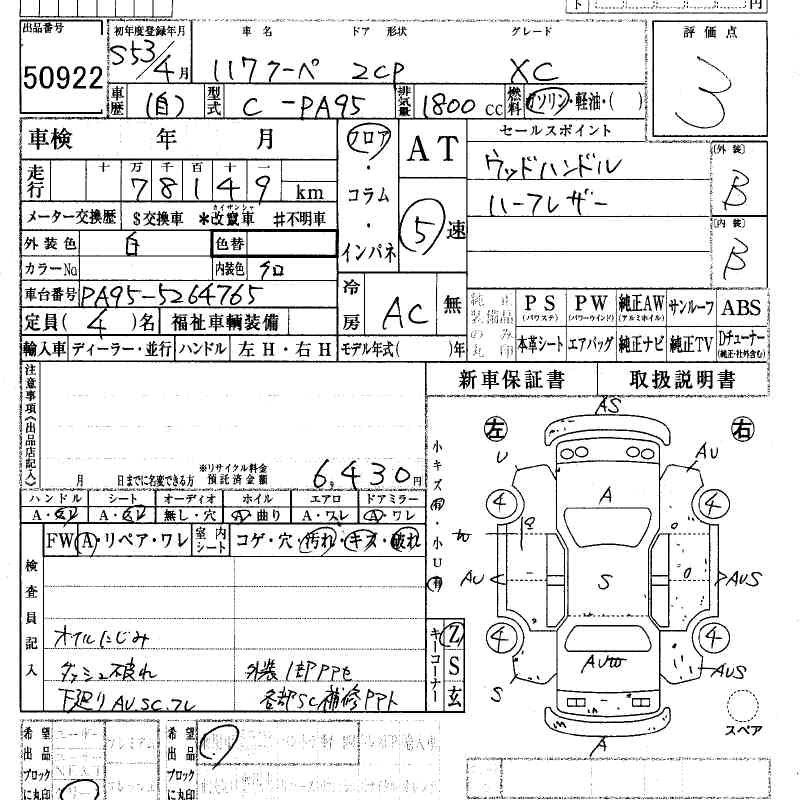 出品番号
50922
初年度登録年月
S53/4月
車名 ドア 形状 グレード
117クーペ 2CP XC
評価点
3
車歴 (自) 型式 C-PA95 排気量 1800cc 燃料 ガソリン・軽油・( )
車検 年 月
走行 十 万 千 百 十 一
78149 km
メーター交換歴 $交換車 *改竄車 #不明車
カイザンシャ
外装色 白 色替
カラーNo 内装色 クロ
車台番号 PA95-5264765
定員(4)名 福祉車輌装備
輸入車 ディーラー・並行 ハンドル 左H・右H モデル年式( )年
フロア・コラム・インパネ
AT
5速
冷房 AC 無
セールスポイント
ウッドハンドル
ハーフレザー
[外装]
B
[内装]
B
純正装備品のみ丸印
PS (パワステ) PW (パワーウインド) 純正AW (アルミホイル) サンルーフ ABS
本革シート エアバッグ 純正ナビ 純正TV Dチューナー (純正・社外含む)
新車保証書 取扱説明書
注意事項《出品店記入》
月 日までに名変できる方 ※リサイクル料金預託済金額 6,430円
ハンドル シート オーディオ ホイル エアロ ドアミラー
A・ヨレ A・ヨレ 無し・穴 A・曲り A・ワレ A・ワレ
FW A・リペア・ワレ 室内シート コゲ・穴・汚れ・キズ・破れ
検査員記入
オイルにじみ
ダッシュ破れ 外装1部PPセ
下廻りAU.SC.フレ 各部SC補修PPト
小キズ有・小U有
キーコーナー Z S 玄
左 右
AS
U AU
4 A 4
W
AU S AUS
4 4
AUto AUS
S
A
スペア
希望出品
ブロックに丸印
希望出品
ブロックに丸印